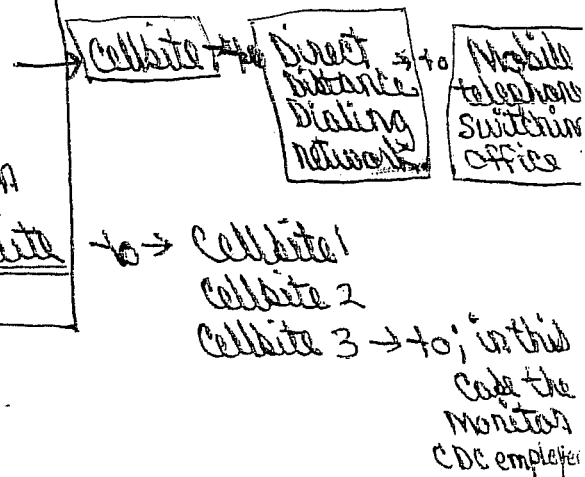 Cellsite 1
Direct
Distance
Dialing
network
→ to
Mobile
telephone
switching
office
to → Cellsite 1
Cellsite 2
Cellsite 3 → to; in this
case the
monitor
CDC employee